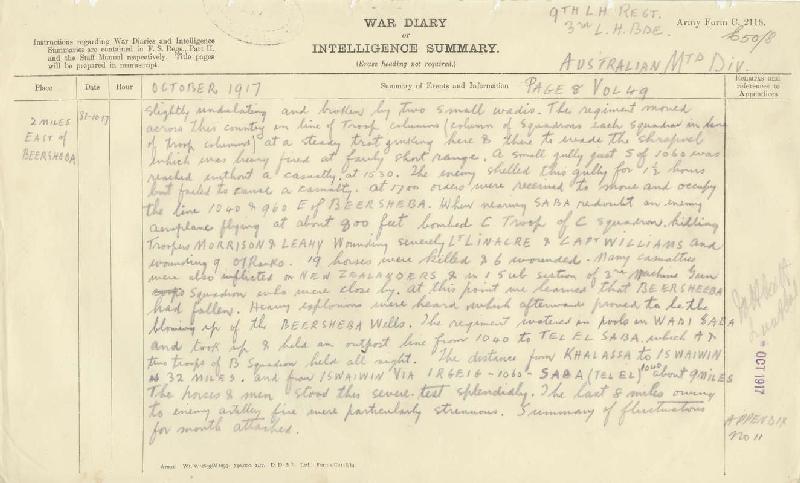 9TH L H REGT.
3rd L.H. BDE.
AUSTRALIAN MTD DIV.
WAR DIARY
or
INTELLIGENCE SUMMARY.
(Erase heading not required.)
Army Form C. 2118.
Instructions regarding War Diaries and Intelligence
Summaries are contained in F. S. Regs., Part II.
and the Staff Manual respectively. Title pages
will be prepared in manuscript.
Place
Date
Hour
Summary of Events and Information
Remarks and
references to
Appendices
OCTOBER 1917
PAGE 8 VOL 49
2 MILES
EAST of
BEERSHEBA
31-10-17
slightly undulating and broken by two small wadis. The regiment moved
across this country in line of Troop columns (column of squadrons each squadron in line
of troop columns) at a steady trot jinking here & there to evade the shrapnel
which was being fired at fairly short range. A small gully just S of 1060 was
reached without a casualty at 1530. The enemy shelled this gully for 1½ hours
but failed to cause a casualty. At 1700 orders were received to move and occupy
the line 1040 & 960 E of BEERSHEBA. When nearing SABA redoubt an enemy
aeroplane flying at about 900 feet bombed C Troop of C Squadron killing
Troopers MORRISON & LEAHY Wounding severely LT LINACRE & CAPT WILLIAMS and
wounding 9 O/Ranks. 19 horses were killed & 6 wounded. Many casualties
were also inflicted on NEW ZEALANDERS & in 1 Sub section of 3rd Machine Gun
Squadron who were close by. At this point we learned that BEERSHEBA
had fallen. Heavy explosions were heard which afterwards proved to be the
blowing up of the BEERSHEBA Wells. The regiment watered in pools in WADI SABA
and took up & held an outpost line from 1040 to TEL EL SABA, which A &
two troops of B Squadron held all night. The distance from KHALASSA to ISWAIWIN
32 MILES. and from ISWAIWIN VIA IRGEIG - 1060 - SABA (TEL EL) 1040 about 9 MILES
The horses & men stood this severe test splendidly. The last 8 miles owing
to enemy artillery fire were particularly strenuous. Summary of fluctuations
for month attached.
OCT 1917
APPENDIX
No 11